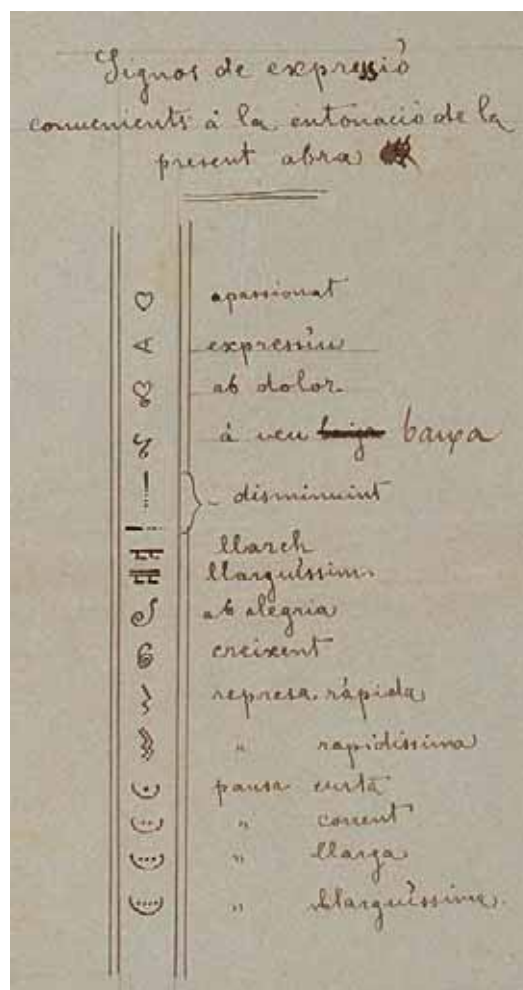 Signos de expressió
convenients á la entonació de la
present obra
apassionat
expressiu
ab dolor
á veu baixa
disminuint
llarch
llarguíssim
ab alegria
creixent
represa rápida
" rapidíssima
pausa curta
" corrent
" llarga
" llarguíssima.